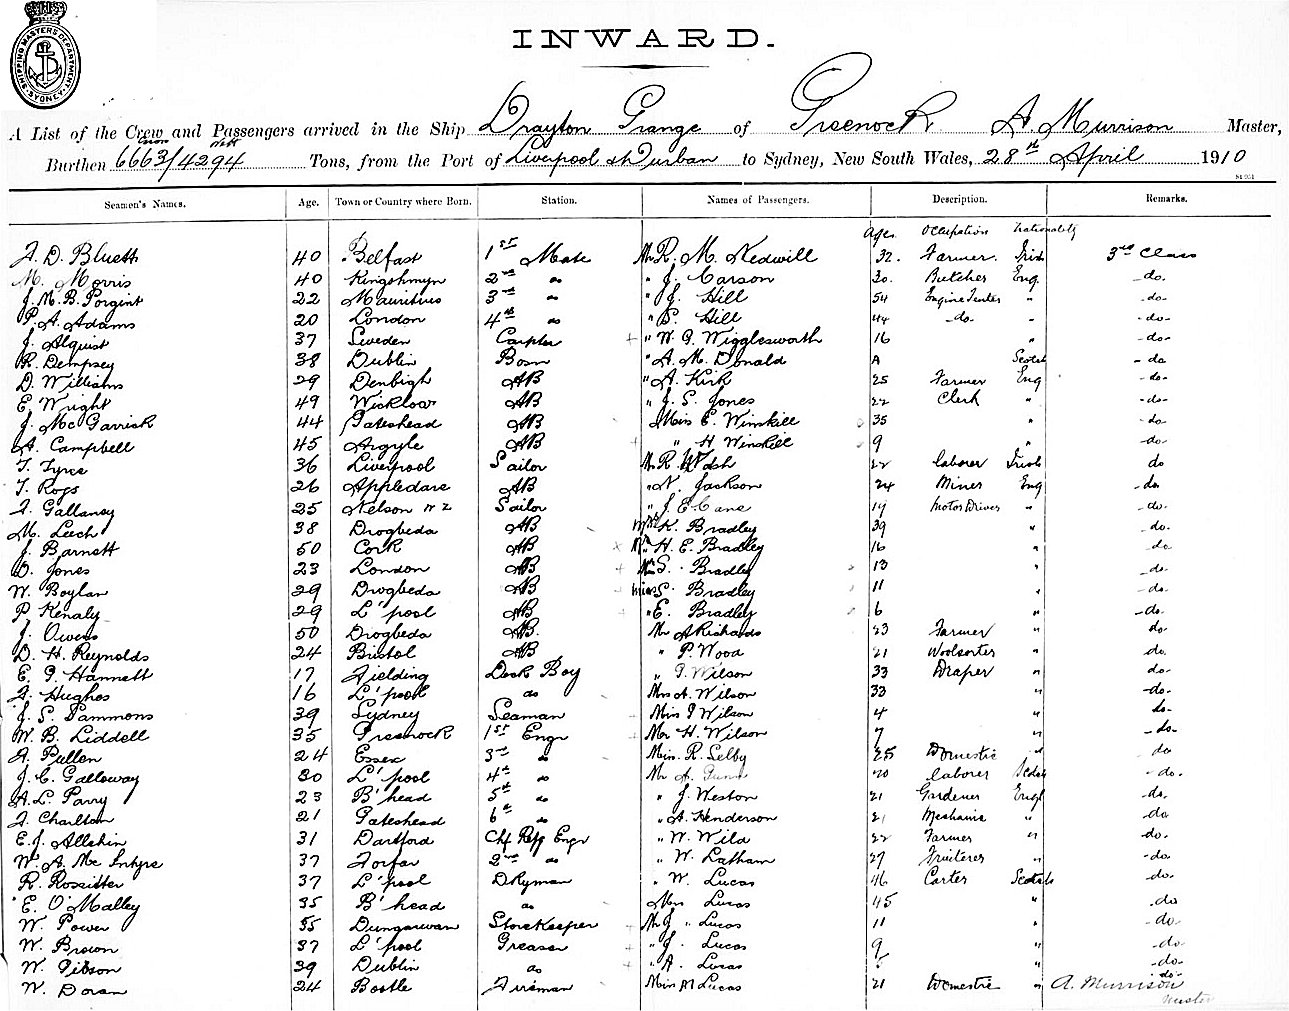 SHIPPING MASTERS DEPARTMENT SYDNEY
INWARD.
A List of the Crew and Passengers arrived in the Ship Drayton Grange of Greenock A. Murrison Master,
Burthen 6663/4294 Tons, from the Port of Liverpool & Durban to Sydney, New South Wales, 28th April 1910
Seamen's Names. Age. Town or Country where Born. Station. Names of Passengers. Description. Remarks.
Age Occupation Nationality
A. D. Bluett 40 Belfast 1st Mate Mr R. M. Nedwill 32. Farmer. Irish 3rd Class
M. Morris 40 2nd do " J. Carson 30. Butcher Eng. -do-
J. M. B. 22 Mauritius 3rd do " J. Hill 54 -do-
P. A. Adams 20 London 4th do " S. Hill 44 -do- " -do-
J. Alquist 37 Sweden Carpter + " W. G. Wigglesworth 16 " -do-
R. Dempsey 38 Dublin Bosn " A. M. Donald Scotch -do
D. Williams 29 Denbigh AB " A. Kirk 25 Farmer Eng -do-
E. Wright 49 Wicklow AB " J. S. Jones 22 Clerk " -do-
J. McGarrick 44 Gateshead AB Miss E. Winskill 35 " -do
A. Campbell 45 Argyle AB " H Winskill 9 " -do
T. Tyres 36 Liverpool Sailor Mr R. 22 laborer Irish do
T. 26 Appledore AB " N. Jackson 24 Miner Eng -do
25 Nelson NZ Sailor " J. E. Cane 19 Motor Driver " -do-
M. Leech 38 Drogheda AB Mrs K. Bradley 39 " -do-
J. Barnett 50 Cork AB H. E. Bradley 16 " do
D. Jones 23 London AB S. Bradley 13 " -do-
W. Boylan 29 Drogheda AB Miss S. Bradley 11 " -do-
P. Kenaly 29 L'pool AB " E. Bradley 6 " -do-
J. Owens 50 Drogheda AB. Mr A Richards 23 Farmer " do-
D. H. Reynolds 24 Bristol AB " P. Wood 21 Woolsorter " do.
E. G. Hannett 17 Fielding Deck Boy " G. Wilson 33 Draper " do-
A. Hughes 16 L'pool do Mrs A. Wilson 33 " -do-
J. S. Sammons 39 Sydney Seaman Miss G Wilson 4 " do-
W. B. Liddell 35 Greenock 1st Engr Mr H. Wilson 7 " -do-
A. Pullen 24 Essex 3rd do Miss. R. Selby 25 Domestic " do
J. C. Galloway 30 L'pool 4th do Mr A. Gunn 20 laborer -do-
A. L. Parry 23 B'head 5th do " J. Weston 21 Gardener Engl -do-
A. Charlton 21 Gateshead 6th do " A. Henderson 21 Mechanic " -do
E. J. Allchin 31 Dartford Chf Refg Engr " W. Wild 22 Farmer " -do-
W. A. McIntyre 37 Forfar 2nd do " W. Latham 27 Fruiterer " -do-
R. Rossitter 37 L'pool Dkyman " W. Lucas 46 Carter Scotch -do-
E. O'Malley 35 B'head do Mrs Lucas 45 " -do
W. Power 35 Dungarvan Storekeeper Mr J " Lucas 11 " -do-
W. Brown 37 L'pool Greaser " J. Lucas 9 " -do-
W. Gibson 39 Dublin do + " A. Lucas " -do-
W. Doran 24 Bootle Fireman Miss M Lucas 21 Domestic " -do-
A. Murrison
Master